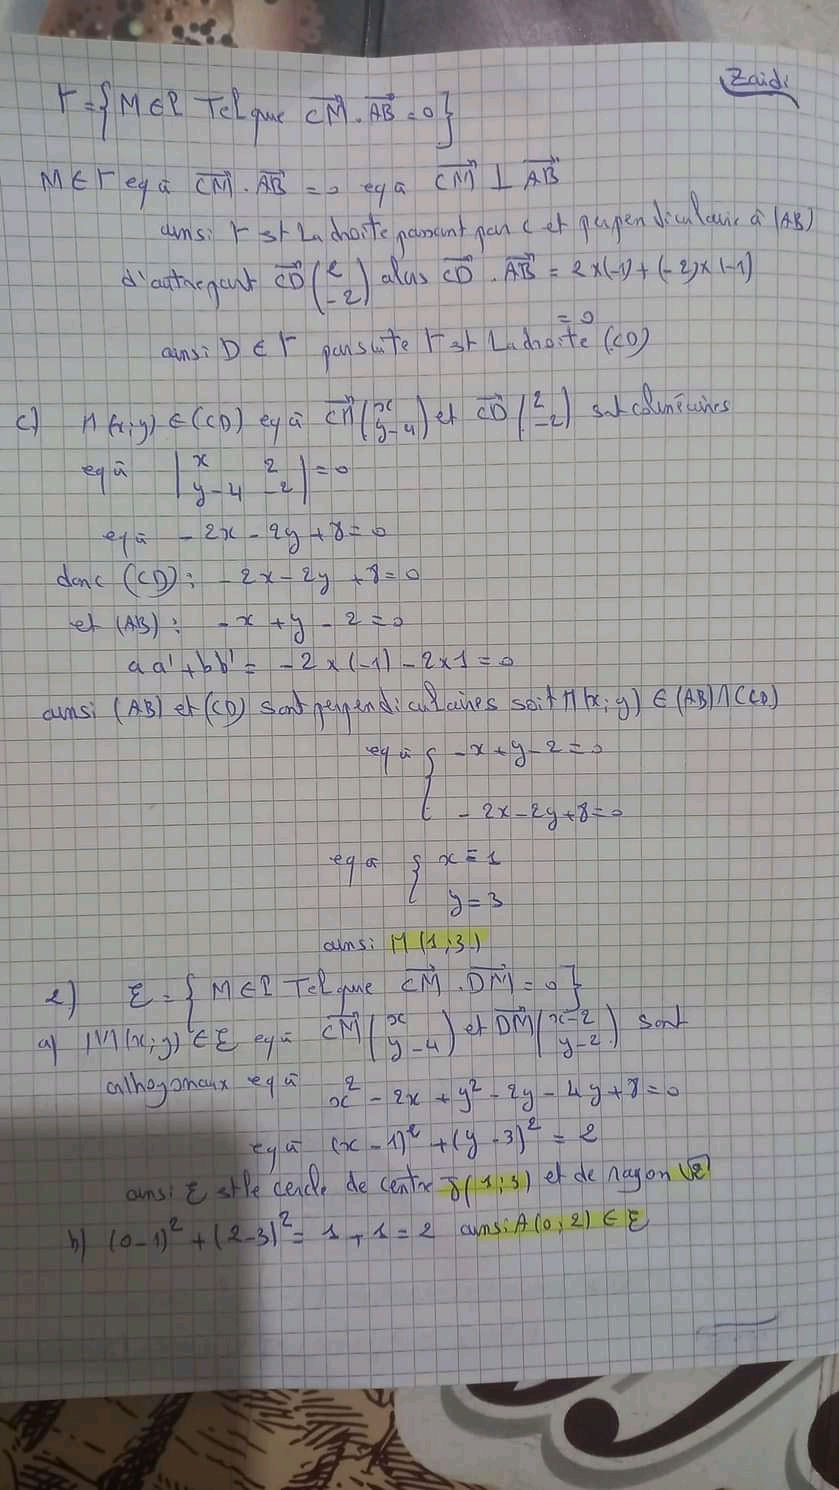 Zaidi
Γ = { M ∈ P Tel que CM⃗ . AB⃗ = 0 }
M ∈ Γ eq à CM⃗ . AB⃗ = 0 eq à CM⃗ ⊥ AB⃗
ainsi Γ est La droite passant par C et perpendiculaire à (AB)
d'autre part CD⃗ (2 ; -2) alors CD⃗ . AB⃗ = 2x(-1) + (-2)x(-1)
= 0
ainsi D ∈ Γ par suite Γ est La droite (CD)
c) M(x;y) ∈ (CD) eq à CM⃗ (x ; y-4) et CD⃗ (2 ; -2) sont colinéaires
eq à | x 2 ; y-4 -2 | = 0
eq à - 2x - 2y + 8 = 0
donc (CD) : - 2x - 2y + 8 = 0
et (AB) : - x + y - 2 = 0
aa' + bb' = - 2 x (-1) - 2 x 1 = 0
ainsi (AB) et (CD) sont perpendiculaires soit M(x; y) ∈ (AB) ∩ (CD)
eq à { - x + y - 2 = 0
- 2x - 2y + 8 = 0
eq à { x = 1
y = 3
ainsi M (1 ; 3)
2) ξ = { M ∈ P Tel que CM⃗ . DM⃗ = 0 }
a) M(x; y) ∈ ξ eq à CM⃗ (x ; y-4) et DM⃗ (x-2 ; y-2) sont
orthogonaux eq à x² - 2x + y² - 2y - 4y + 8 = 0
eq à (x - 1)² + (y - 3)² = 2
ainsi ξ est le cercle de centre J(1 ; 3) et de rayon √2
b) (0 - 1)² + (2-3)² = 1 + 1 = 2 ainsi A(0 ; 2) ∈ ξ